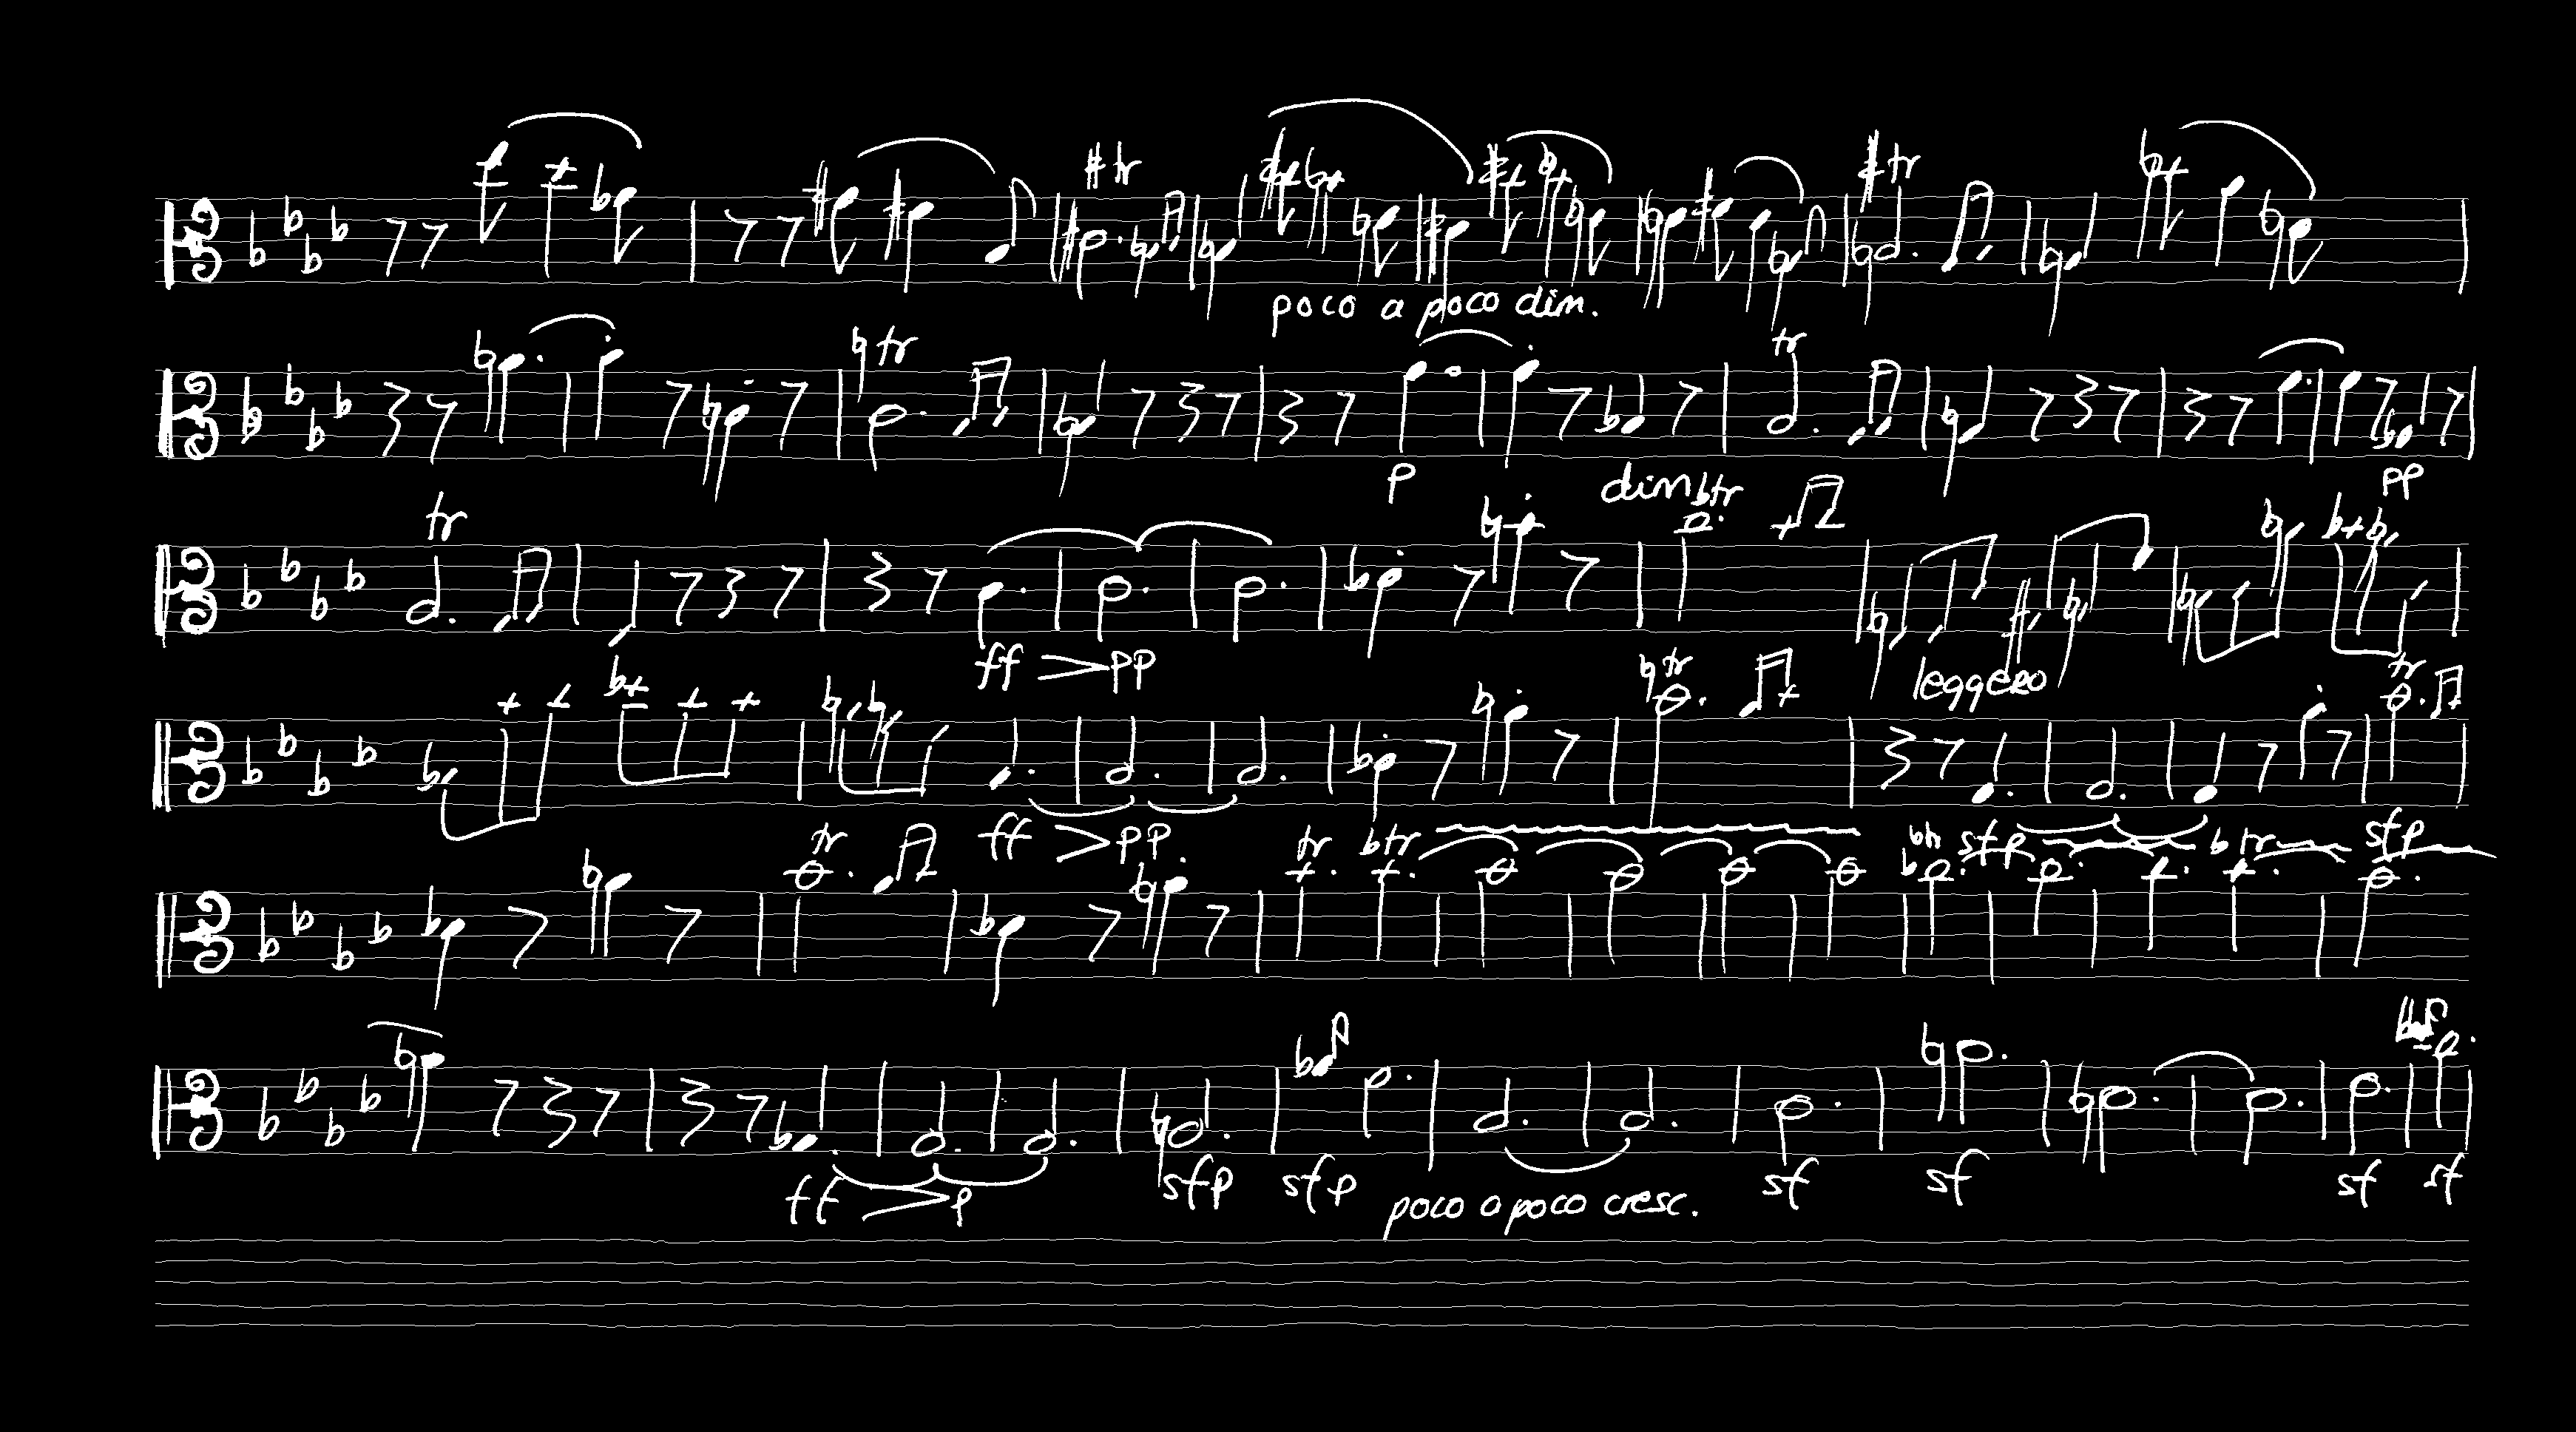 tr tr
poco a poco dim.
tr tr
p dim tr pp
tr
ff pp leggero
tr tr
ff pp. sfp sfp
tr tr tr tr tr
ff p sfp sfp poco a poco cresc. sf sf sf sf